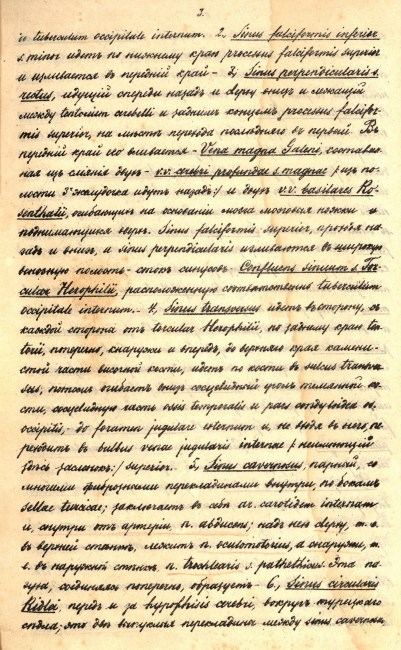 2.
и tuberculum occipitale internum. 2, Sinus falciformis inferior
s. minor идетъ по нижнему краю processus falciformis superior
и изливается въ передній край — 3, Sinus perpendicularis s.
rectus, идущій спереди назадъ и сверху внизъ и лежащій
между tentorium cerebelli и заднимъ концемъ processus falcifor-
mis superior, на мѣстѣ перехода послѣдняго въ первый. Въ
передній край его вливается — Vena magna Galeni, составлен-
ная изъ сліянія двухъ — v.v. cerebri profundae s. magnae /: изъ по-
лости 3го желудочка идутъ назадъ :/ и двухъ v.v. basilares Ro-
senthalii, огибающихъ на основаніи мозга мозговыя ножки и
поднимающихся вверхъ. Sinus falciformis superior, пройдя на-
задъ и внизъ, и sinus perpendicularis изливаются въ широкую
венозную полость — стокъ синусовъ Confluens sinuum s. Tor-
cular Herophilii, расположенную соотвѣтственно tuberculum
occipitale internum. — 4, Sinus transversus идетъ въ сторону, съ
каждой стороны отъ torcular Herophilii, по заднему краю ten-
torii, поперечно, кнаружи и впередъ, до верхняго края камени-
стой части височной кости, идетъ по кости въ sulcus transver-
sus, потомъ огибаетъ внизъ сосцевидный уголъ темянной ко-
сти, сосцевидную часть ossis temporalis и pars condyloidea os.
occipitis, — до foramen jugulare externum и, не выйдя въ него, пе-
реходитъ въ bulbus venae jugularis internae /: неимѣющій
здѣсь заслонокъ :/ superior. — 5, Sinus cavernosus, парный, со
многими фиброзными перекладинами внутри, по бокамъ
sellae turcicae; заключаетъ въ себѣ ar. carotidem internam
и, внутри отъ артеріи, n. abducens; надъ нею сверху, т. е.
въ верхней стѣнкѣ, лежитъ n. oculomotorius, а снаружи, т.
е. въ наружной стѣнкѣ, n. trochlearis s. patheticus. Эта па-
зуха, соединяясь поперечно, образуетъ — 6, Sinus circularis
Ridlei, передъ и за hypophisis cerebri, вокругъ турецкаго
сѣдла; это двѣ выпуклыя перекладины между sinus cavernosus,